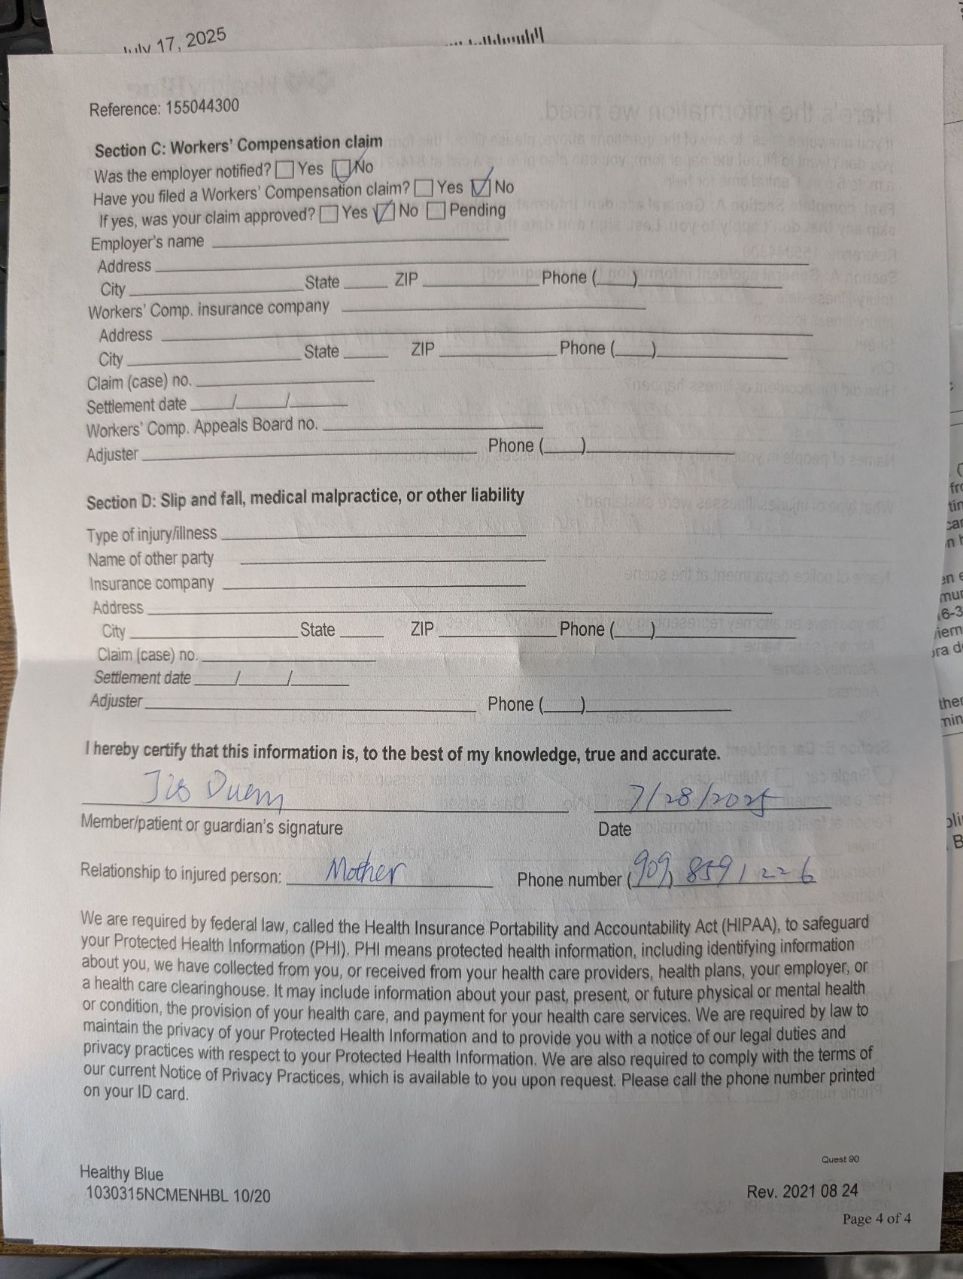 July 17, 2025
Reference: 155044300
Section C: Workers' Compensation claim
Was the employer notified? Yes No
Have you filed a Workers' Compensation claim? Yes No
If yes, was your claim approved? Yes No Pending
Employer's name
Address
City State ZIP Phone ( )
Workers' Comp. insurance company
Address
City State ZIP Phone ( )
Claim (case) no.
Settlement date / /
Workers' Comp. Appeals Board no.
Adjuster Phone ( )
Section D: Slip and fall, medical malpractice, or other liability
Type of injury/illness
Name of other party
Insurance company
Address
City State ZIP Phone ( )
Claim (case) no.
Settlement date / /
Adjuster Phone ( )
I hereby certify that this information is, to the best of my knowledge, true and accurate.
7/28/2025
Member/patient or guardian's signature Date
Relationship to injured person: Mother Phone number (909) 859 1226
We are required by federal law, called the Health Insurance Portability and Accountability Act (HIPAA), to safeguard
your Protected Health Information (PHI). PHI means protected health information, including identifying information
about you, we have collected from you, or received from your health care providers, health plans, your employer, or
a health care clearinghouse. It may include information about your past, present, or future physical or mental health
or condition, the provision of your health care, and payment for your health care services. We are required by law to
maintain the privacy of your Protected Health Information and to provide you with a notice of our legal duties and
privacy practices with respect to your Protected Health Information. We are also required to comply with the terms of
our current Notice of Privacy Practices, which is available to you upon request. Please call the phone number printed
on your ID card.
Quest 90
Healthy Blue
1030315NCMENHBL 10/20 Rev. 2021 08 24
Page 4 of 4